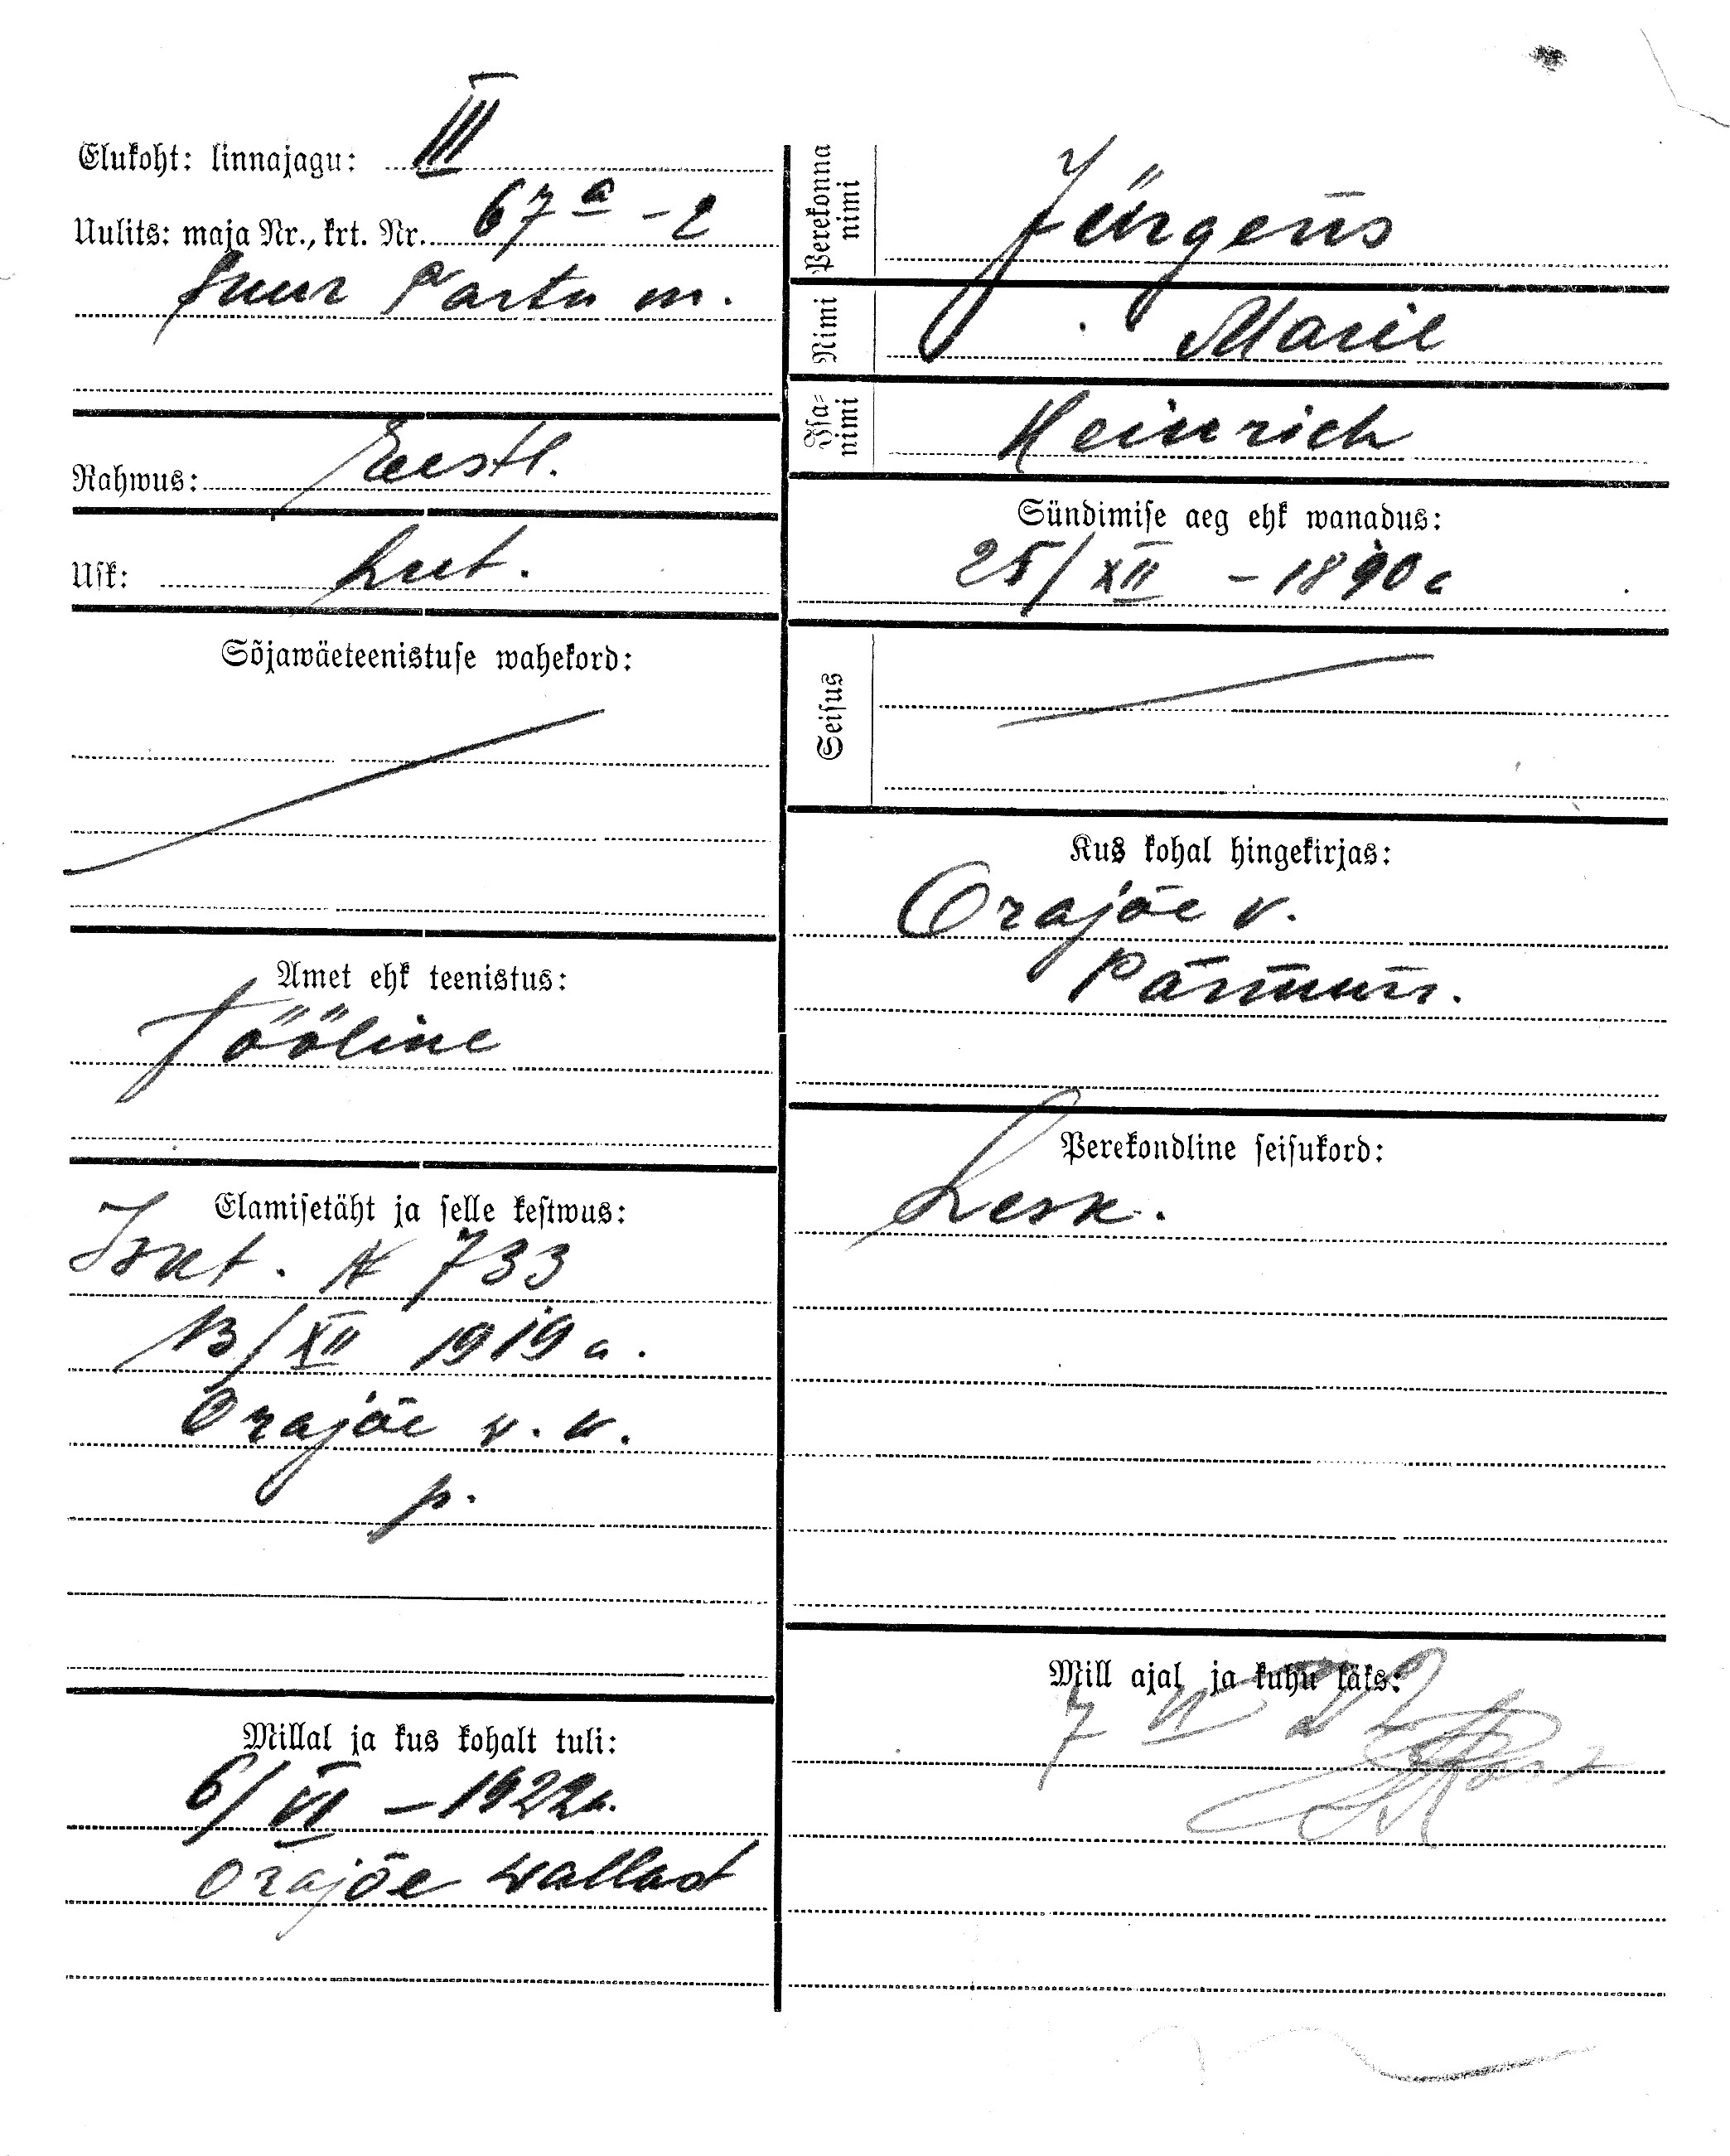 Elukoht: linnajagu: III
Uulits: maja Nr., krt. Nr. 67 a - 2
Suur Tartu m.
Rahwus: Eestl.
Usk: Lut.
Sõjawäeteenistuse wahekord:
Amet ehk teenistus:
Tööline
Elamisetäht ja selle kestwus:
Isut. № 733
13/XII 1919 a.
Orajõe v. v.
p.
Millal ja kus kohalt tuli:
6/VI - 1922 a.
Orajõe wallast
Perekonna nimi
Jürgens
Nimi
Marie
Isa-nimi
Heinrich
Sündimise aeg ehk wanadus:
25/XII - 1890 a
Seisus
Kus kohal hingekirjas:
Orajõe v.
Pärnum.
Perekondline seisukord:
Lesk.
Mill ajal ja kuhu läks:
7 VI 22